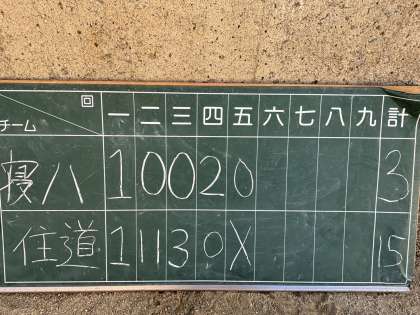 回 一 二 三 四 五 六 七 八 九 計
チーム
寝八 1 0 0 2 0 3
住道 1 11 3 0 X 15